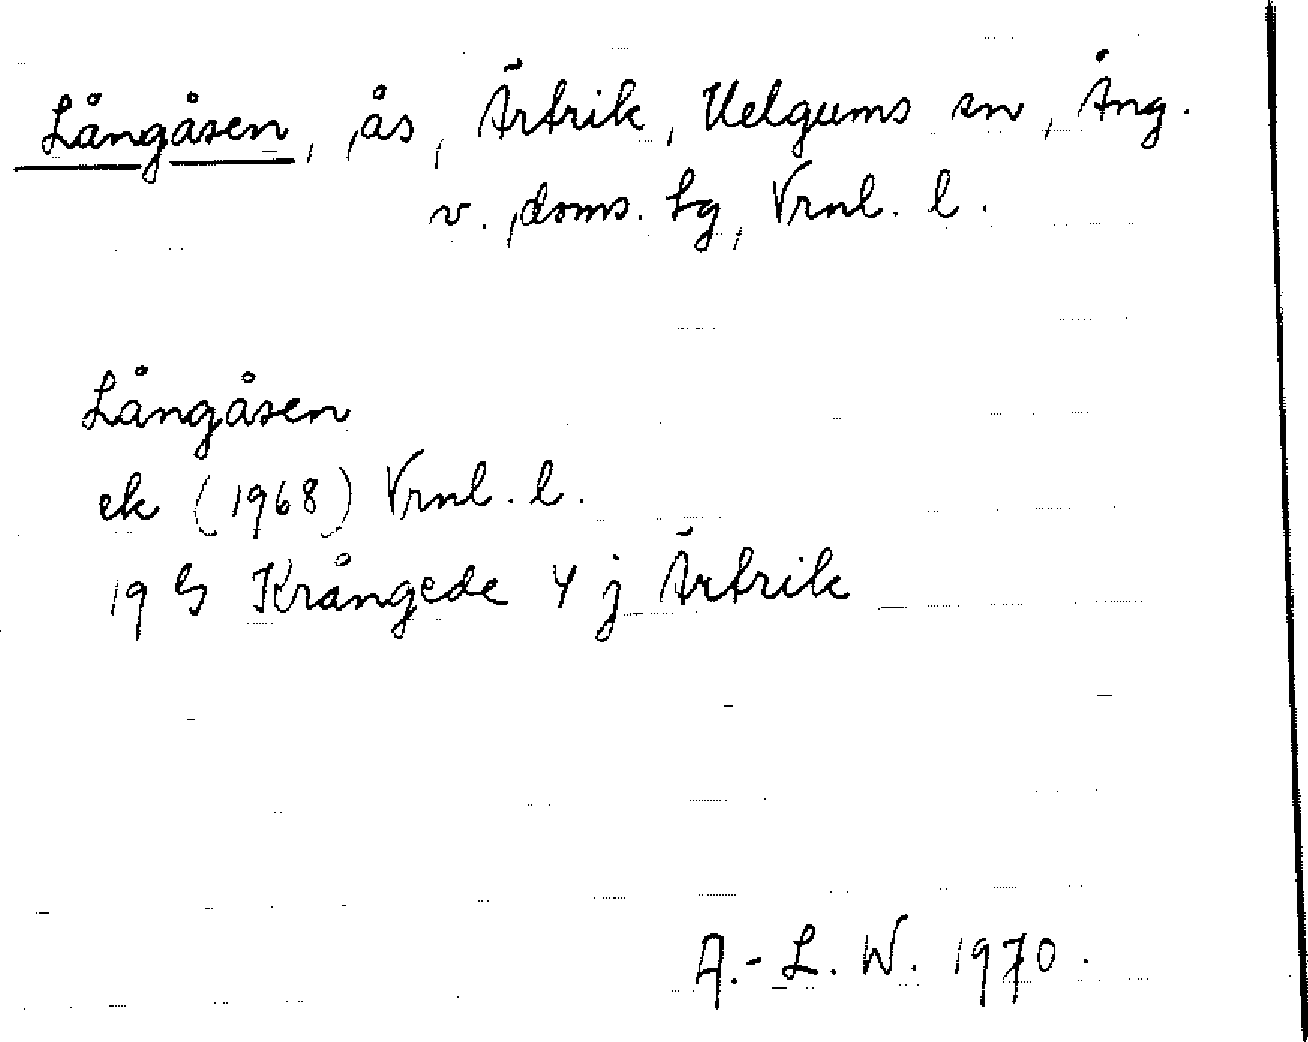 Långåsen, ås, Ärtrik, Helgums sn, Ång.
v. doms. Lg, Vrnl. l.
Långåsen
ek (1968) Vrnl. l.
19 G Krångede 4 j Ärtrik
A.-L. W. 1970.